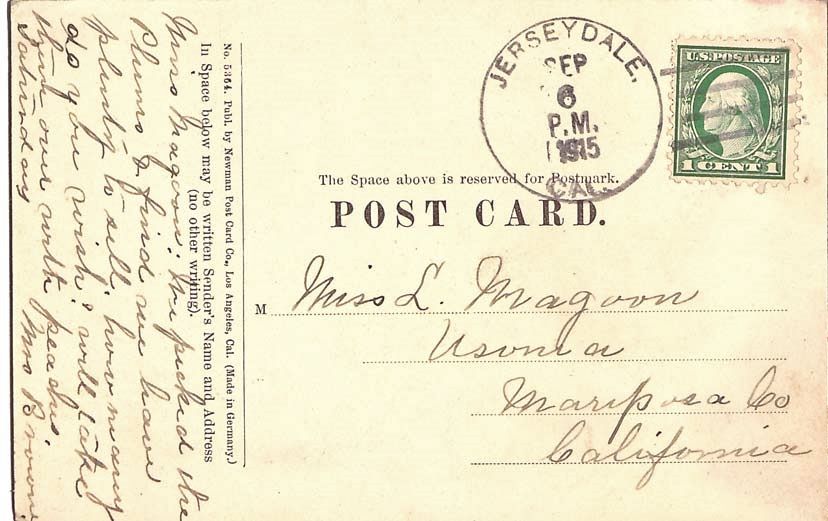 JERSEYDALE,
SEP
6
P.M.
1915
CAL.
U.S. POSTAGE
1 CENT 1
The Space above is reserved for Postmark.
POST CARD.
M Miss L. Magoon
Usona
Mariposa Co
California
No. 5364. Publ. by Newman Post Card Co., Los Angeles, Cal. (Made in Germany.)
In Space below may be written Sender's Name and Address
(no other writing).
Miss Magoon: We picked the
Plums & find we have
plenty to sell. how many
do you wish? will take
them over with peaches.
Saturday Mrs Brown